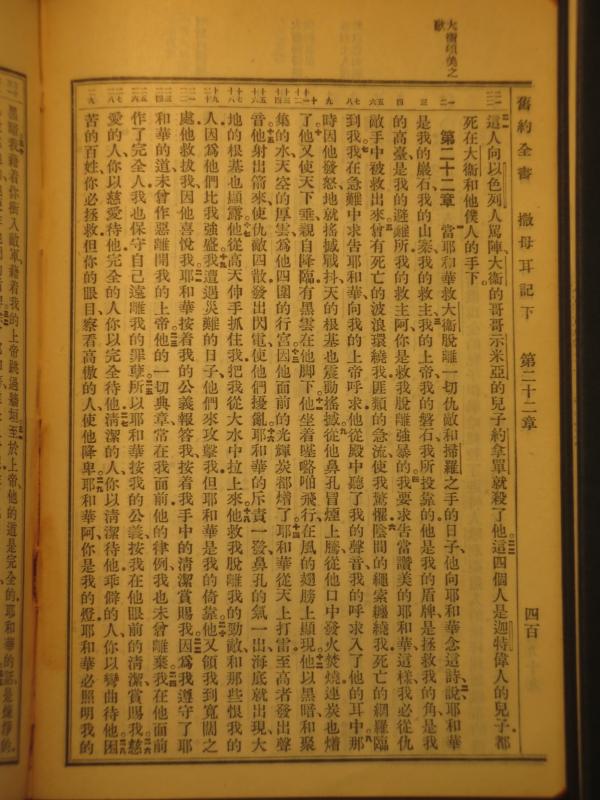 大衛頌美之歌
舊約全書 撒母耳記下 第二十二章 四百
這人向以色列人罵陣大衛的哥哥示米亞的兒子約拿單就殺了他這四個人是迦特偉人的兒子都
死在大衛和他僕人的手下
第二十二章 當耶和華救大衛脫離一切仇敵和掃羅之手的日子他向耶和華念這詩說耶和華
是我的巖石我的山寨我的救主我的上帝我的磐石我所投靠的他是我的盾牌是拯救我的角是我
的高臺是我的避難所我的救主阿你是救我脫離強暴的我要求告當讚美的耶和華這樣我必從仇
敵手中被救出來曾有死亡的波浪環繞我匪類的急流使我驚懼陰間的繩索纏繞我死亡的網羅臨
到我我在急難中求告耶和華向我的上帝呼求他從殿中聽了我的聲音我的呼求入了他的耳中那
時因他發怒地就搖撼戰抖天的根基也震動搖撼從他鼻孔冒煙上騰從他口中發火焚燒連炭也燺
了他又使天下垂親自降臨有黑雲在他脚下他坐着飛行在風的翅膀上顯現他以黑暗和聚
集的水天空的厚雲為他四圍的行宮因他面前的光輝炭都燺了耶和華從天上打雷至高者發出聲
音他射出箭來使仇敵四散發出閃電使他們擾亂耶和華的斥責一發鼻孔的氣一出海底就出現大
地的根基也顯露他從高天伸手抓住我把我從大水中拉上來他救我脫離我的勁敵和那些恨我的
人因為他們比我強盛我遭遇災難的日子他們來攻擊我但耶和華是我的倚靠他又領我到寬闊之
處他救拔我因他喜悅我耶和華按着我的公義報答我按着我手中的清潔賞賜我因為我遵守了耶
和華的道未曾作惡離開我的上帝他的一切典章常在我面前他的律例我也未曾離棄我在他面前
作了完全人我也保守自己遠離我的罪孽所以耶和華按我的公義按我在他眼前的清潔賞賜我慈
愛的人你以慈愛待他完全的人你以完全待他清潔的人你以清潔待他乖僻的人你以彎曲待他困
苦的百姓你必拯救但你的眼目察看高傲的人使他降卑耶和華阿你是我的燈耶和華必照明我的
黑暗我藉着你衝入敵軍藉着我的上帝跳過牆垣至於上帝他的道是完全的耶和華的話是煉淨的